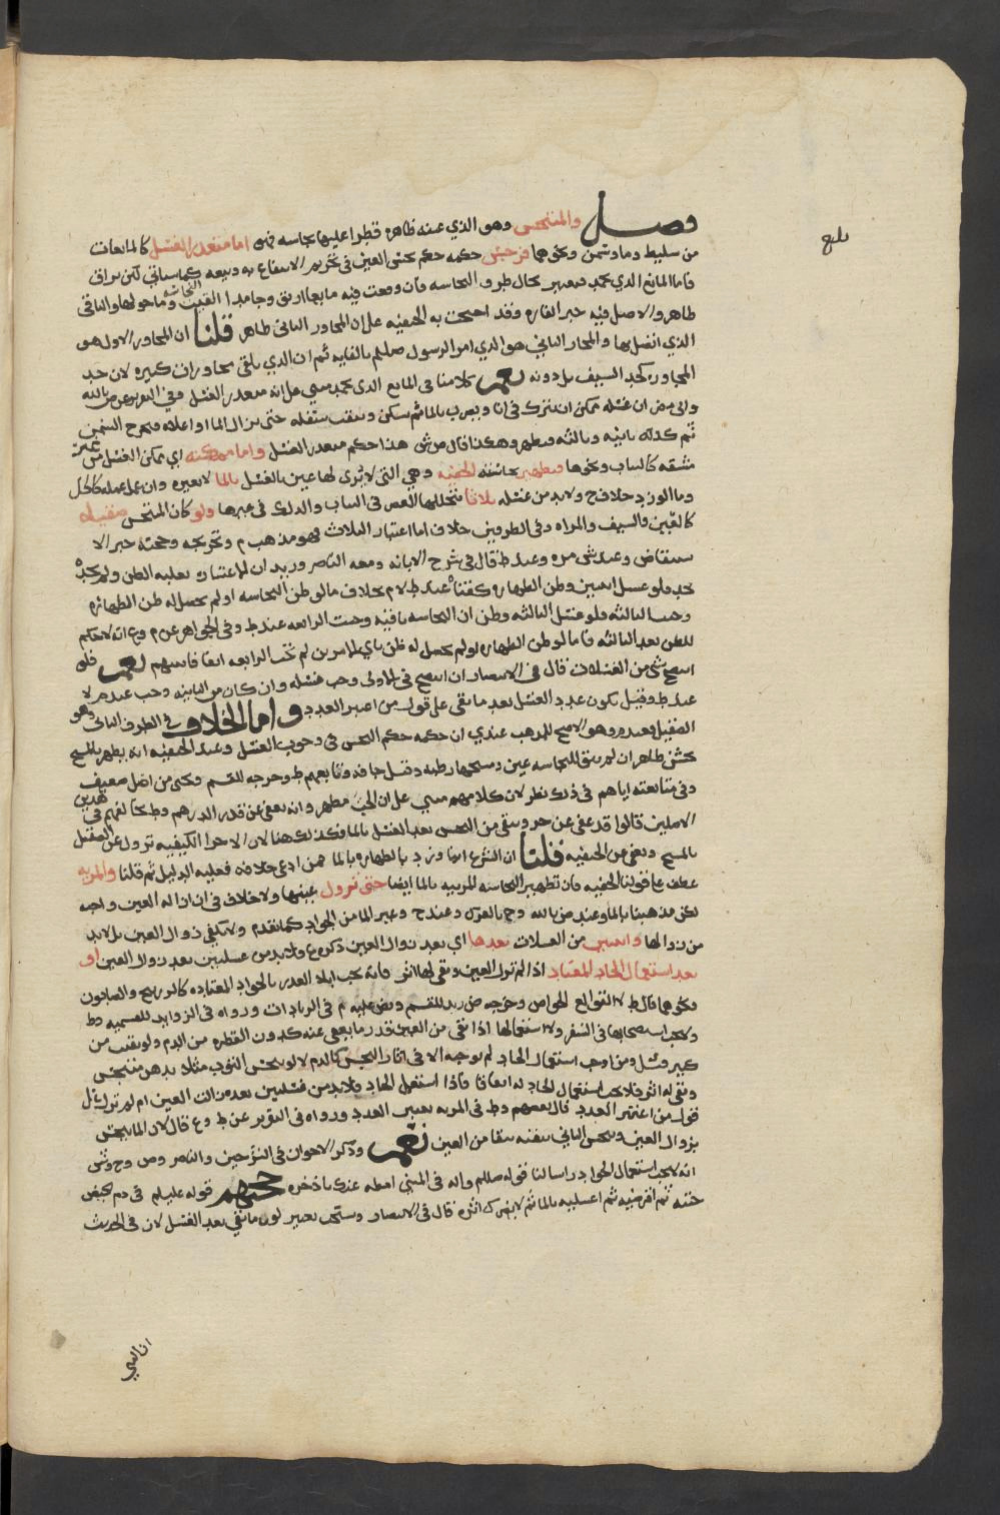 فصل والمتنجس وهو الذي عينه ظاهره قبل طروا عليها نجاسه فهي اما متعذر الغسل كالمايعات
من سليط وما وسمن ونحوها فرجس حكمه حكم نجس العين في تحريم الانتفاع به وبيعه كما سياتي لكن يراق
فاما المايع الذي يجمد فيعتبر بحال طرو النجاسه فان وقعت فيه مايعا اريق وجامدا القيت النجاسه وما حولها والباقي
طاهر والاصل فيه خبر الفاره وقد احتجت به الحنفيه على ان المجاور الثاني طاهر قلنا ان المجاور الاول هو
الذي اتصل بها والمجاور الثاني هو الذي امر الرسول صللم بالقايه ثم ان الذي يلقى مجاورات كثيره لان حد
المجاوره كحد السيف بل دونه نعم كلامنا في المايع الذي يجمد مبني على انه متعذر الغسل وفي التقرير عن ض بالله
وابي مضر ان غسله ممكن ان يترك في انا ويضرب بالما ثم يسكن وينقب سفله حتى ينزل الما او اعلاه فيخرج السمن
ثم كذلك ثانيه وثالثه فيطهر وهكذا قال مرشي هذا حكم متعذر الغسل واما ممكنه اي ممكن الغسل من غير
مشقه كالثياب ونحوها فتطهير نجاسته الخفيه وهي التي لا يرى لها عين بالغسل بالما لا بغيره وان عمل عمله كالخل
وما الورد خلاف ح ولا بد من غسله ثلاثا يتخللها العصر في الثياب والدلك في غيرها ولو كان المتنجس صقيلا
كالعين والسيف والمراه وفي الطرفين خلاف اما اعتبار الثلاث فهو مذهب م وتخريجه وحجته خبر الا
ستيقاظ وعند ش مره وعند ط قال في شرح الابانه ومعه الناصر وزيد ان الاعتبار بغلبه الظن ولم يحد
بحد فلو غسل اثنتين وظن الطهاره كفتا عند ط لا م بخلاف ما لو ظن النجاسه او لم يحصل له ظن الطهاره
وجب الثالثه فلو غسل الثالثه وظن ان النجاسه باقيه وجبت الرابعه عند ط وفي الجواهر عن م وع انه لا حكم
للظن بعد الثالثه فاما لو ظن الطهاره او لم يحصل له ظن باي الامرين لم تجب الرابعه اتفاقا بينهم نعم فلو
انتضح شي من الغسلات قال في الانتصار ان انتضح في الاولى وجب غسله وان كان من الثانيه وجب عندم لا
عند ط وقيل يكون عدد الغسل بعد ما بقى على قول من اعتبر العدد واما الخلاف في الطرف الثاني وهو
الصقيل فعند م وهو الاصح للمذهب عندي ان حكمه حكم النجس في وجوب الغسل وعند الحنفيه انه يطهر بالمسح
بخشن طاهر ان لم يبق للنجاسه عين ومسحها رطبه وقيل جافه وتابعهم ط وخرجه للقسم ويحيى من اصل ضعيف
وفي متابعته اياهم في ذلك نظر لان كلامهم مبني على ان الحي مطهر وانه يعفى عن قدر الدرهم وط يخالفهم في هذين
الاصلين قالوا قد عفي عن جرو بقي من النجس بعد الغسل بالما فكذلك هنا لان الاجزا الكثيفيه تزول عن الصقيل
بالمسح ويعفى من الخفيه قلنا ان الشرع انما ورد بالطهاره بالما فمن ادعى خلافه فعليه الدليل ثم قلنا والمريه
عطف على قولنا الخفيه فان تطهير النجاسه المرييه بالما ايضا حتى تزول عينها ولا خلاف في ان ازاله العين واجبه
لكن مذهبنا بالما وعند ض بالله وح بالفرك وعند ح وغير الما من الحواد كما تقدم ولا يكفي زوال العين بل لا بد
من زوالها واثنتين من الغسلات بعدها اي بعد زوال العين ذكره ع ولا بد من غسلتين بعد زوال العين او
بعد استعمال الحاد المعتاد اذا لم تزل العين وبقى لها اثر فانه يجب ابلا العذر بالحواد المعتاده كالورس والصابون
ونحوها قال ط لا لتوابع الخواص وخرجه ض زيد للقسم ونص عليه م في الزيادات ورواه في الزوايد للقسميه وط
ولا يجب استصحابها في السفر ولا استعمالها اذا بقى من العين قدر ما يعفى عنه كدون القطره من الدم ولو بقيت من
كبير وقيل ومن اوجب استعمال الحاد لم يوجبه الا في اثار النجس كالدم لا لو تنجس الثوب مثلا بدهن متنجس
وبقي له اثر فلا يجب استعمال الحاد له اتفاقا فاذا استعمل الحاد فلا بد من غسلتين بعده زالت العين ام لم تزل على
قول من اعتبر العدد قال بعضهم وط في المريه يعتبر العدد ورواه في التقرير عن ط وع قال لان الما ينجس
بزوال العين وينجس الثاني بقيته بقا من العين نعم وذكر الاخوان في الشرحين والناصر وص وح وش
انه لا يجب استعمال الحواد راسا لنا قوله صللم واله في المني امطه عنك باذخره حجتهم قوله عليلم في دم الحيض
حتيه ثم اقرضيه ثم اغسليه بالما ثم لا يضرك اثره قال في الانتصار ويستحب تغيير لون ما بقي بعد الغسل لان في الحديث
بلغ